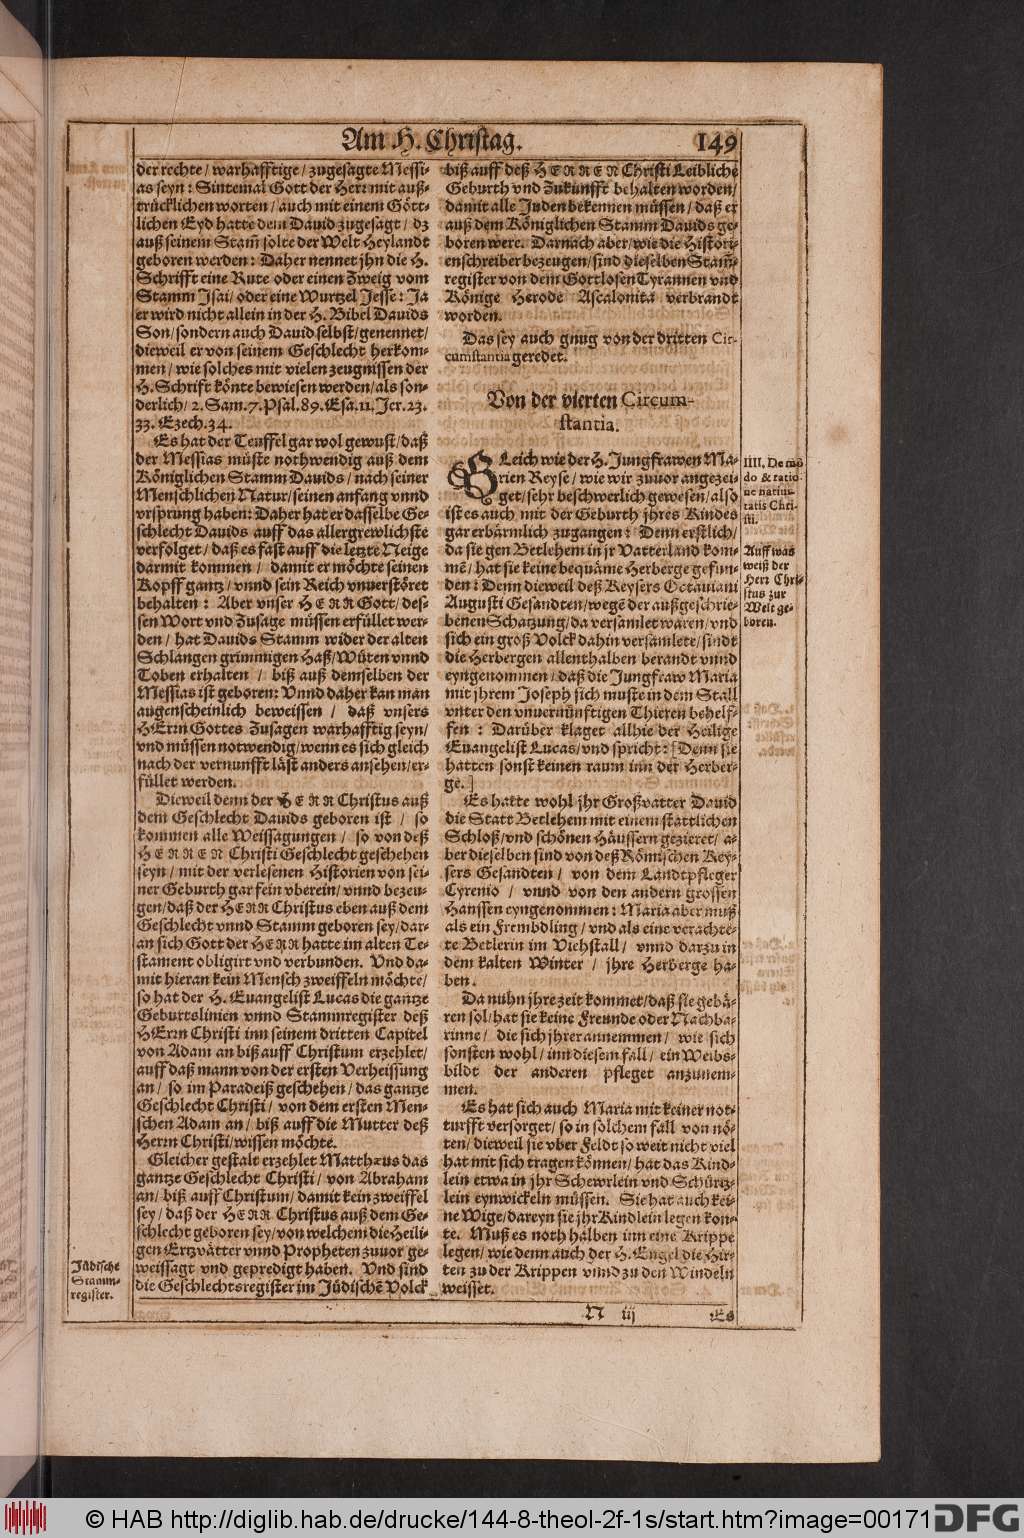 Am H. Christag.
149
der rechte / warhafftige / zugesagte Messi-
as seyn: Sintemal Gott der Herr mit auß-
trücklichen worten / auch mit einem Gött-
lichen Eyd hatte dem Dauid zugesagt / dz
auß seinem Stam̃ solte der Welt Heylandt
geboren werden: Daher nennet jhn die H.
Schrifft eine Rute oder einen Zweig vom
Stamm Isai / oder eine Wurtzel Jesse: Ja
er wird nicht allein in der H. Bibel Dauids
Son / sondern auch Dauid selbst / genennet /
dieweil er von seinem Geschlecht herkom-
men / wie solches mit vielen zeugnissen der
H. Schrift könte bewiesen werden / als son-
derlich / 2. Sam. 7. Psal. 89. Esa. 11. Jer. 23.
33. Ezech. 34.
Es hat der Teuffel gar wol gewust / daß
der Messias müste nothwendig auß dem
Königlichen Stamm Dauids / nach seiner
Menschlichen Natur / seinen anfang vnnd
vrsprung haben: Daher hat er dasselbe Ge-
schlecht Dauids auff das allergrewlichste
verfolget / daß es fast auff die letzte Neige
darmit kommen / damit er möchte seinen
Kopff gantz / vnnd sein Reich vnuerstöret
behalten: Aber vnser HERR Gott / des-
sen Wort vnd Zusage müssen erfüllet wer-
den / hat Dauids Stamm wider der alten
Schlangen grimmigen Haß / Wüten vnnd
Toben erhalten / biß auß demselben der
Messias ist geboren: Vnnd daher kan man
augenscheinlich beweissen / daß vnsers
HErrn Gottes Zusagen warhafftig seyn /
vnd müssen notwendig / wenn es sich gleich
nach der vernunfft läst anders ansehen / er-
füllet werden.
Dieweil denn der HERR Christus auß
dem Geschlecht Dauids geboren ist / so
kommen alle Weissagungen / so von deß
HERREN Christi Geschlecht geschehen
seyn / mit der verlesenen Historien von sei-
ner Geburth gar fein vberein / vnnd bezeu-
gen / daß der HERR Christus eben auß dem
Geschlecht vnnd Stamm geboren sey / dar-
an sich Gott der HERR hatte im alten Te-
stament obligirt vnd verbunden. Vnd da-
mit hieran kein Mensch zweiffeln möchte /
so hat der H. Euangelist Lucas die gantze
Geburtslinien vnnd Stammregister deß
HErrn Christi inn seinem dritten Capitel
von Adam an biß auff Christum erzehlet /
auff daß mann von der ersten Verheissung
an / so im Paradeiß geschehen / das gantze
Geschlecht Christi / von dem ersten Men-
schen Adam an / biß auff die Mutter deß
Herrn Christi / wissen möchte.
Gleicher gestalt erzehlet Matthæus das
gantze Geschlecht Christi / von Abraham
an / biß auff Christum / damit kein zweiffel
sey / daß der HERR Christus auß dem Ge-
schlecht geboren sey / von welchem die Heili-
gen Ertzvätter vnnd Propheten zuuor ge-
weissagt vnd gepredigt haben. Vnd sind
die Geschlechtsregister im Jüdischẽ Volck
Jüdische
Stamm-
register.
biß auff deß HERREN Christi Leibliche
Geburth vnd Zukunfft behalten worden /
damit alle Juden bekennen müssen / daß er
auß dem Königlichen Stamm Dauids ge-
boren were. Darnach aber / wie die Histori-
enschreiber bezeugen / sind dieselben Stam̃-
register von dem Gottlosen Tyrannen vnd
Könige Herode Ascalonita verbrandt
worden.
Das sey auch gnug von der dritten Cir-
cumstantia geredet.
Von der vierten Circum-
stantia.
GLeich wie der H. Jungfrawen Ma-
rien Reyse / wie wir zuuor angezei-
get / sehr beschwerlich gewesen / also
ist es auch mit der Geburth jhres Kindes
gar erbärmlich zugangen: Denn erstlich /
da sie gen Betlehem in jr Vatterland kom-
mẽ / hat sie keine bequäme Herberge gefun-
den: Denn dieweil deß Keysers Octauiani
Augusti Gesandten / wegẽ der außgeschrie-
benen Schatzung / da versamlet waren / vnd
sich ein groß Volck dahin versamlete / sindt
die Herbergen allenthalben berandt vnnd
eyngenommen / daß die Jungfraw Maria
mit jhrem Joseph sich muste in dem Stall
vnter den vnuernünftigen Thieren behelf-
fen: Darüber klaget allhie der Heilige
Euangelist Lucas / vnd spricht: [Denn sie
hatten sonst keinen raum inn der Herber-
ge.]
Es hatte wohl jhr Großvatter Dauid
die Statt Betlehem mit einem stattlichen
Schloß / vnd schönen Häussern gezieret / a-
ber dieselben sind von deß Römischen Key-
sers Gesandten / von dem Landtpfleger
Cyrenio / vnnd von den andern grossen
Hanssen eyngenommen: Maria aber muß
als ein Frembdling / vnd als eine verachte-
te Betlerin im Viehstall / vnnd darzu in
dem kalten Winter / jhre Herberge ha-
ben.
Da nuhn jhre zeit kommet / daß sie gebä-
ren sol / hat sie keine Freunde oder Nachba-
rinne / die sich jhrer annemmen / wie sich
sonsten wohl / inn diesem fall / ein Weibs-
bildt der anderen pfleget anzunem-
men.
Es hat sich auch Maria mit keiner not-
turfft versorget / so in solchem fall von nö-
ten / dieweil sie vber Feldt so weit nicht viel
hat mit sich tragen können / hat das Kind-
lein etwa in jhr Schewrlein vnd Schürtz-
lein eynwickeln müssen. Sie hat auch kei-
ne Wige / dareyn sie jhr Kindlein legen kon-
te. Muß es noth halben inn eine Krippe
legen / wie denn auch der H. Engel die Hir-
ten zu der Krippen vnnd zu den Windeln
weisset.
IIII. De mo
do & ratio-
ne natiui-
tatis Chri-
sti.
Auff was
weiß der
Herr Chri-
stus zur
Welt ge-
boren.
N iij
Es
© HAB http://diglib.hab.de/drucke/144-8-theol-2f-1s/start.htm?image=00171
DFG